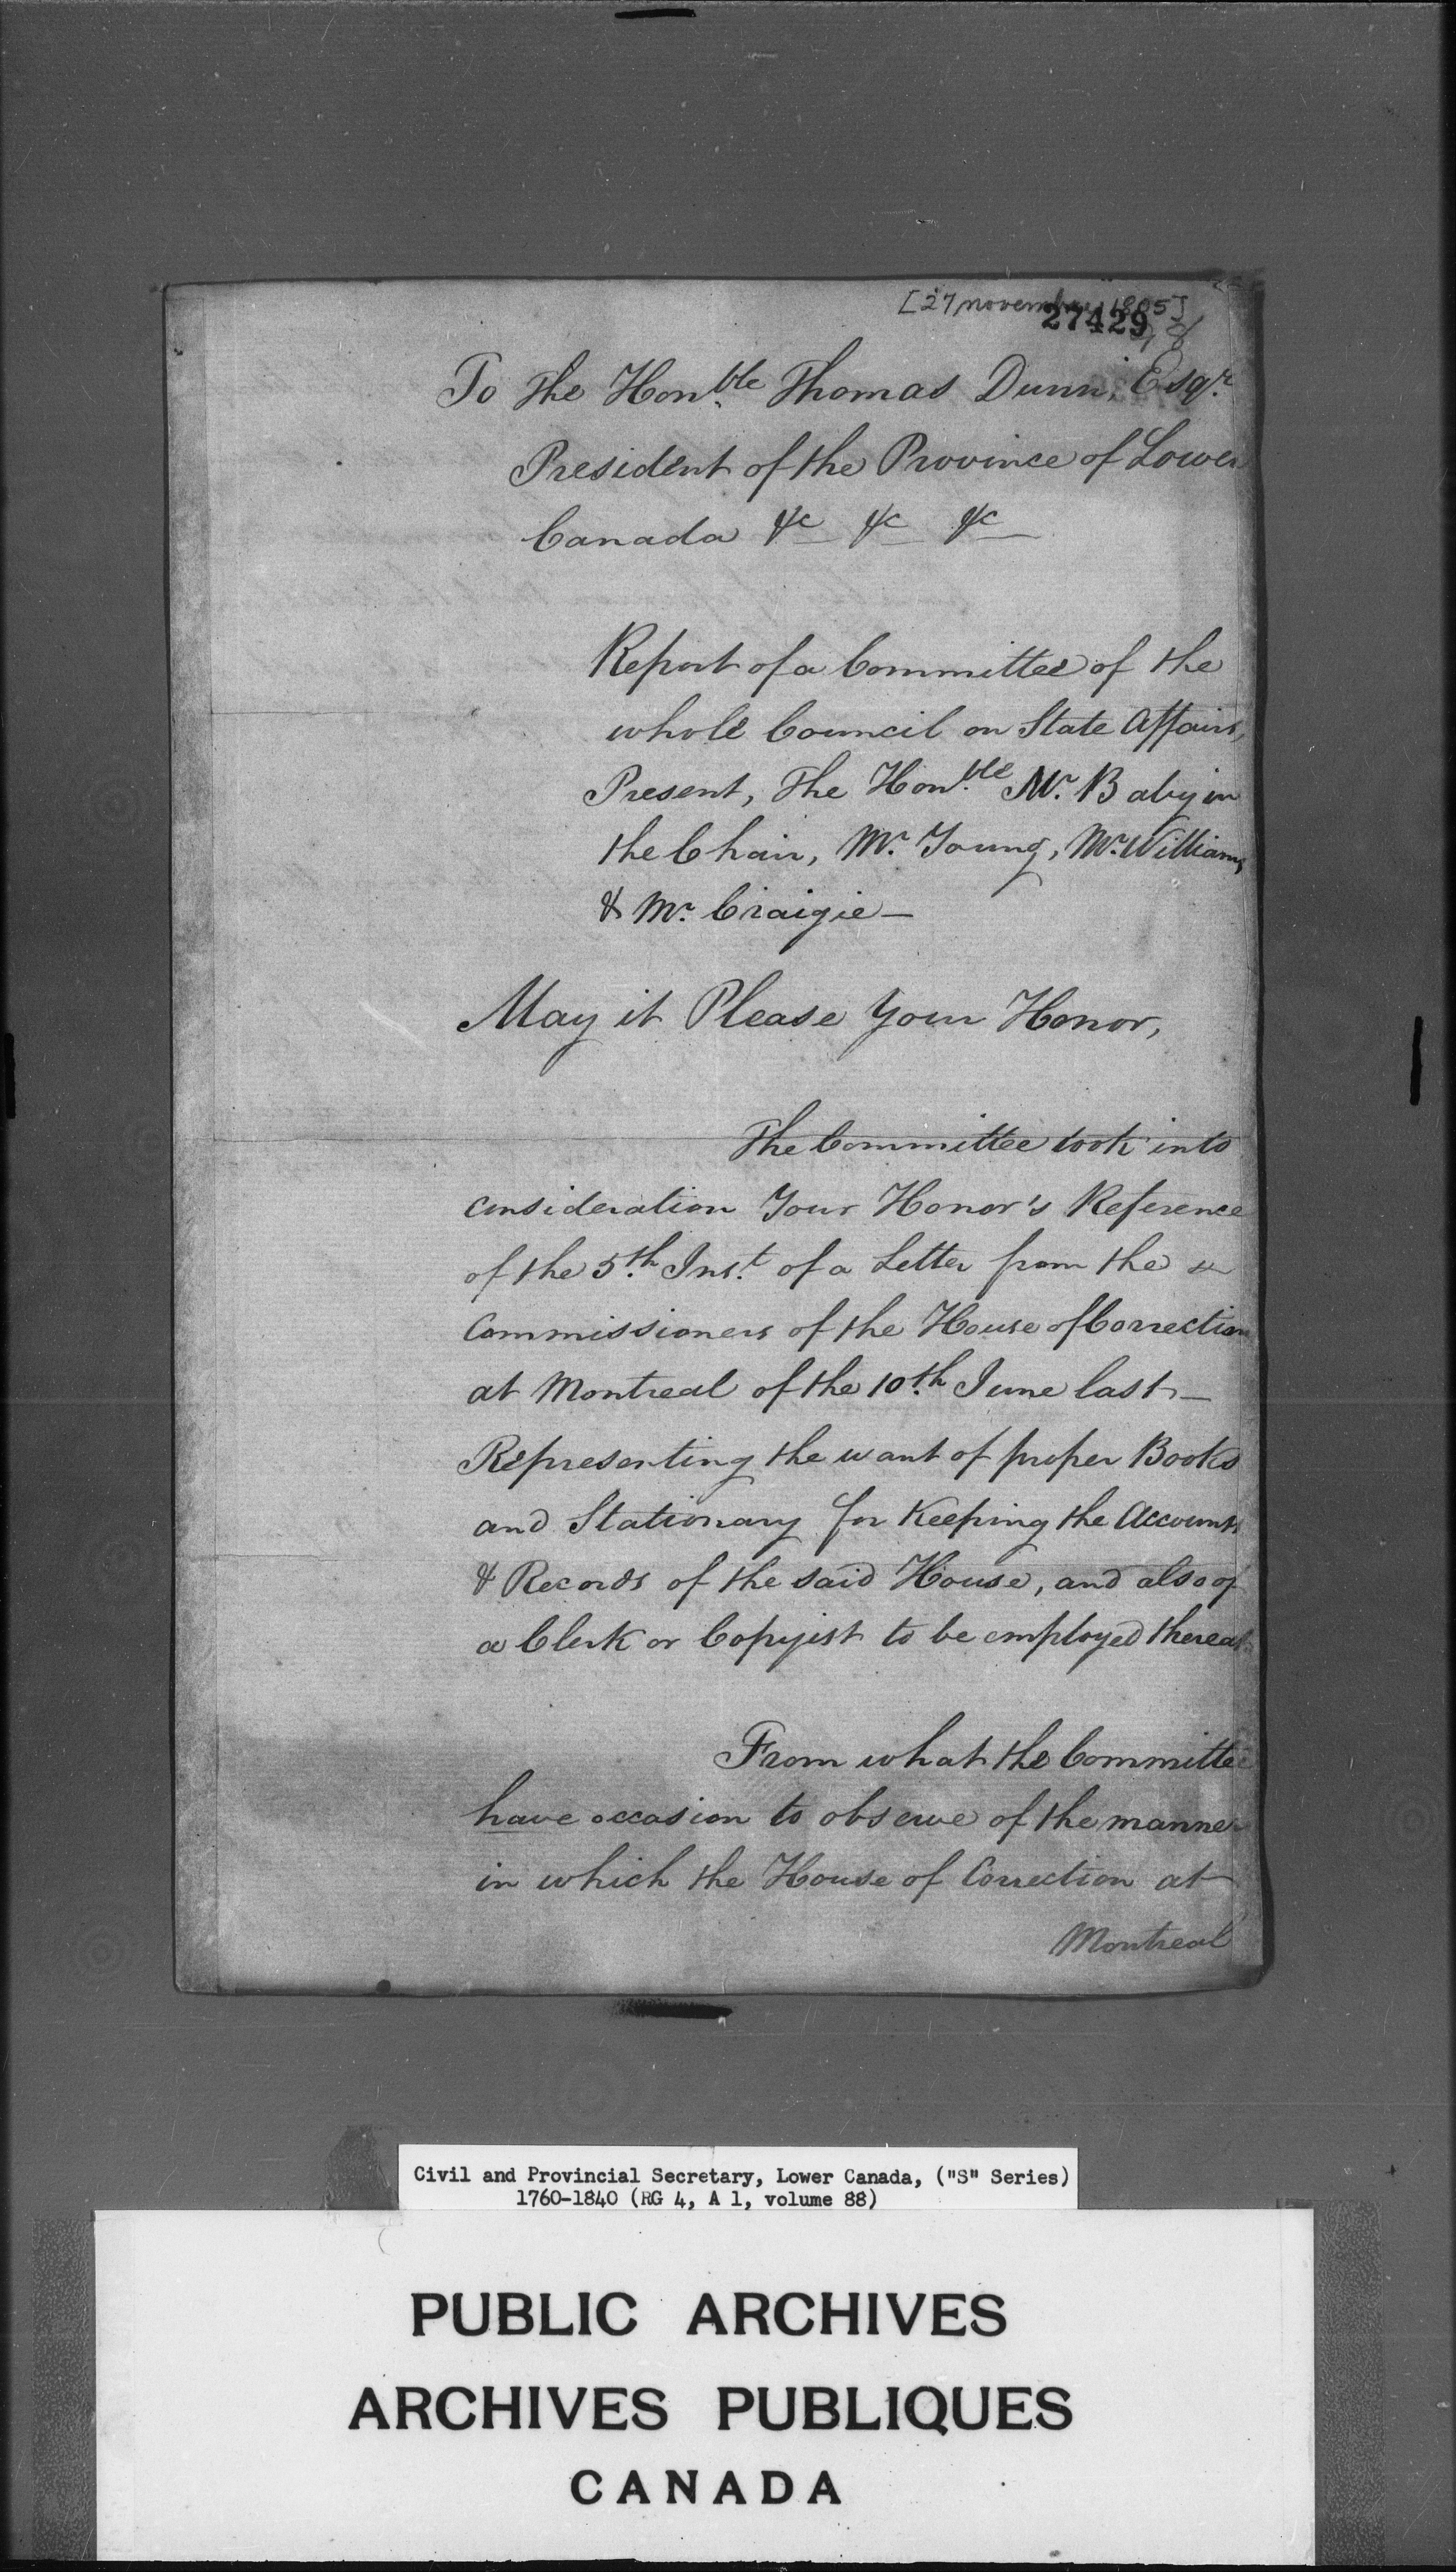 [27 novembre 1805]
27429
To The Hon.ble Thomas Dunn, Esqr.
President of the Province of Lower
Canada &c &c &c
Report of a Committee of the
whole Council on State Affairs,
Present, The Hon.ble Mr. Baby in
the Chair, Mr. Young, Mr. Williams,
& Mr. Craigie —
May it Please Your Honor,
The Committee took into
consideration Your Honor's Reference
of the 5.th Ins.t of a Letter from the
Commissioners of the House of Correction
at Montreal of the 10.th June last —
Representing the want of proper Books
and Stationary for Keeping the Accounts
& Records of the said House, and also of
a Clerk or Copyist to be employed thereat.
From what the Committee
have occasion to observe of the manner
in which the House of Correction at
Montreal
Civil and Provincial Secretary, Lower Canada, ("S" Series)
1760-1840 (RG 4, A 1, volume 88)
PUBLIC ARCHIVES
ARCHIVES PUBLIQUES
CANADA